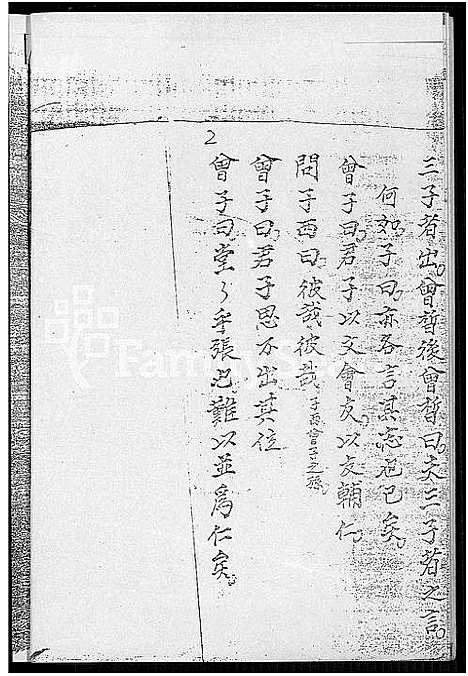 三子者出。曾晢後曾晢曰。夫三子者之言。
何如。子曰。亦各言其志也已矣。
曾子曰。君子以文會友。以友輔仁。
問子西曰。彼哉彼哉 子西曾子之孫。
曾子曰。君子思不出其位
曾子曰。堂々乎張也。難以並爲仁矣。
2
FamilySearch